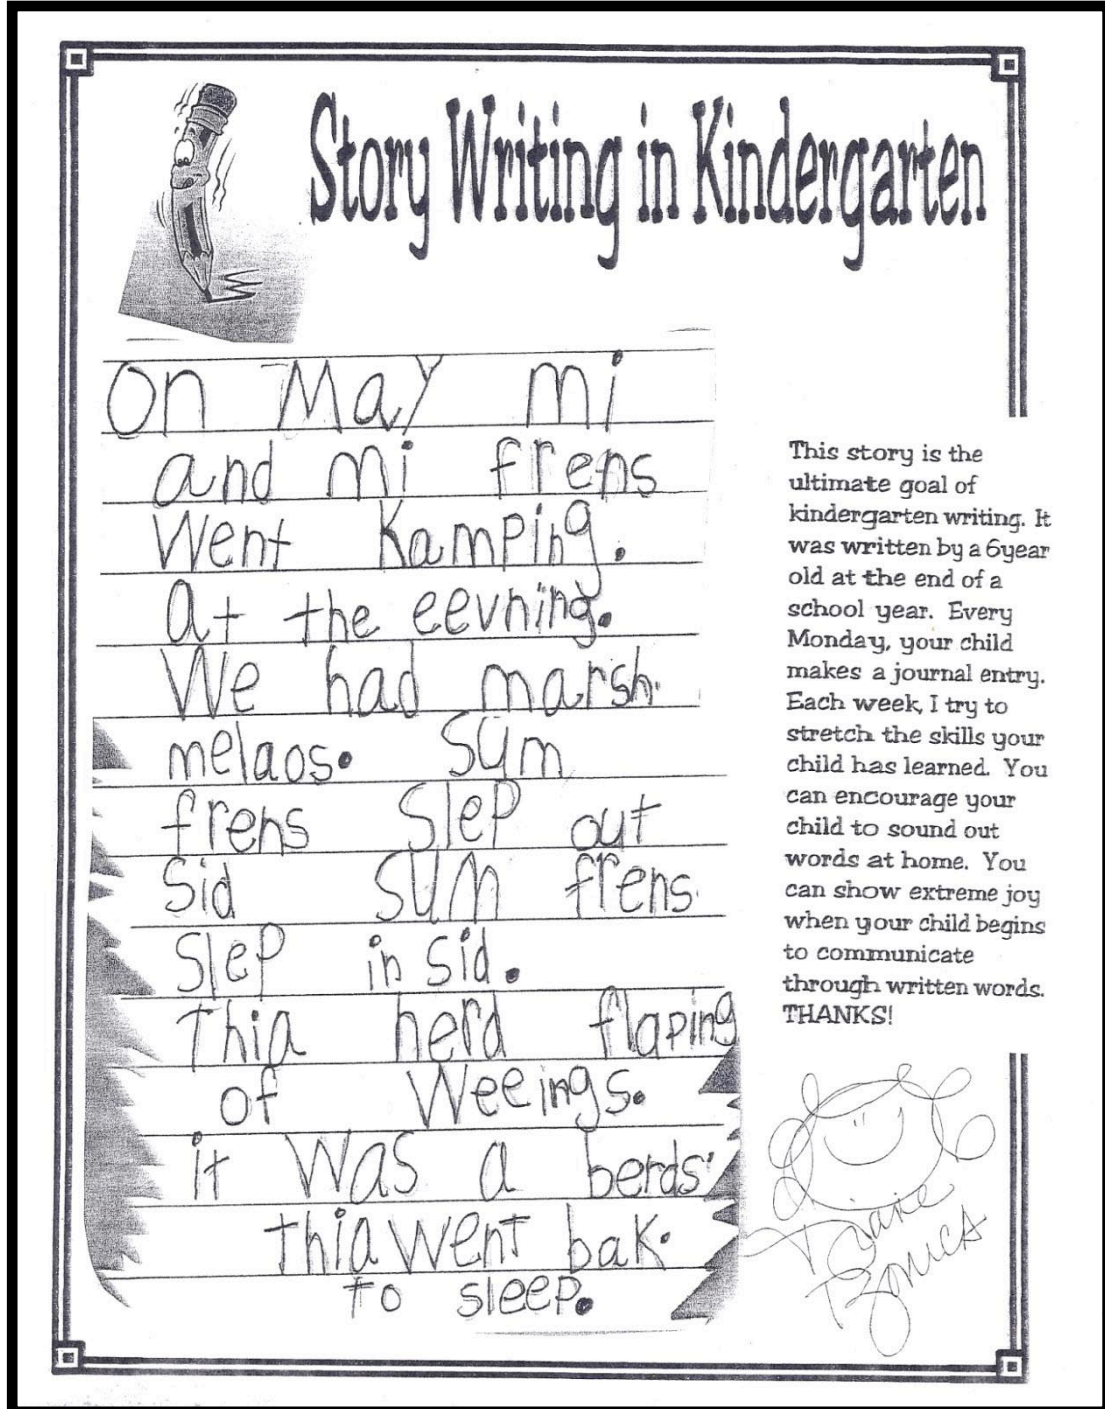 Story Writing in Kindergarten
On May mi
and mi frens
Went Kamping.
at the eevning.
We had marsh.
melaos. Sum
frens Slep out
Sid Sum frens.
Slep in sid.
Thia herd flaping
of Weeings.
it Was a berds'
thia went bak.
to sleep.
This story is the
ultimate goal of
kindergarten writing. It
was written by a 6year
old at the end of a
school year. Every
Monday, your child
makes a journal entry.
Each week, I try to
stretch the skills your
child has learned. You
can encourage your
child to sound out
words at home. You
can show extreme joy
when your child begins
to communicate
through written words.
THANKS!
Diane
Bonica